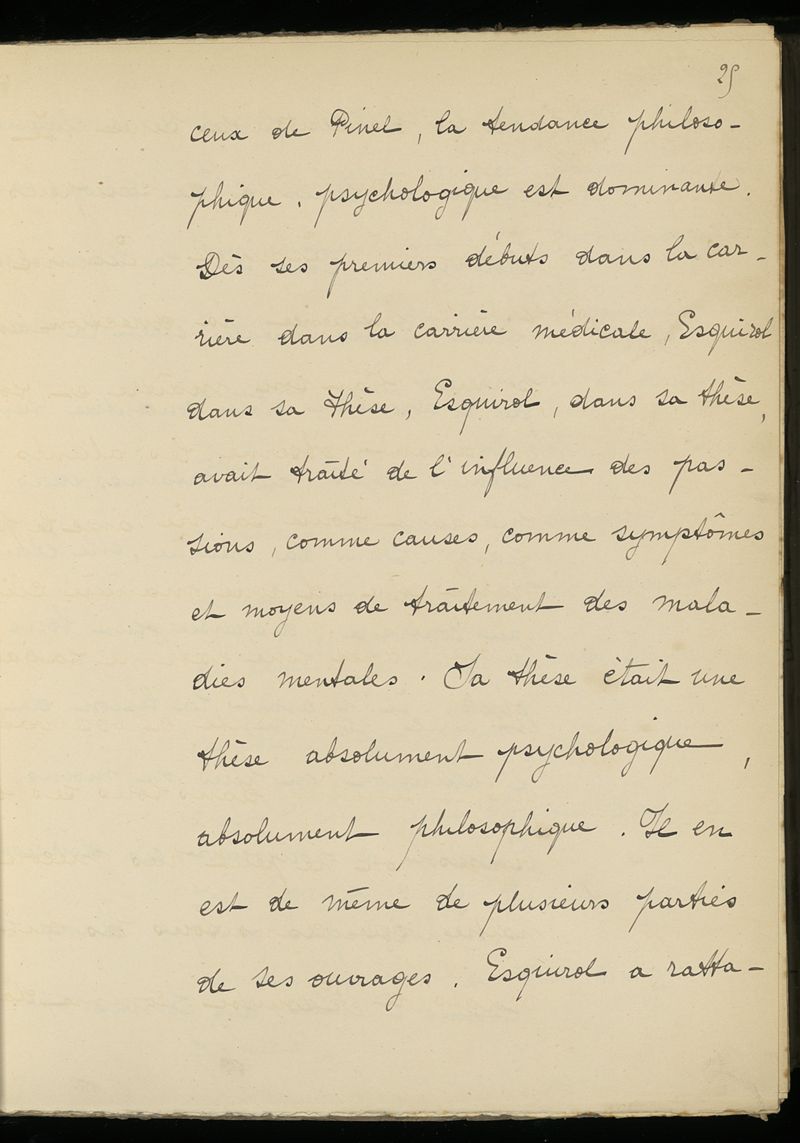 25
ceux de Pinel, la tendance philoso-
phique, psychologique est dominante.
Dès ses premiers débuts dans la car-
rière dans la carrière médicale, Esquirol
dans sa thèse, Esquirol, dans sa thèse,
avait traité de l'influence des pas-
sions, comme causes, comme symptômes
et moyens de traitement des mala-
dies mentales. Sa thèse était une
thèse absolument psychologique,
absolument philosophique. Il en
est de même de plusieurs parties
de ses ouvrages. Esquirol a ratta-